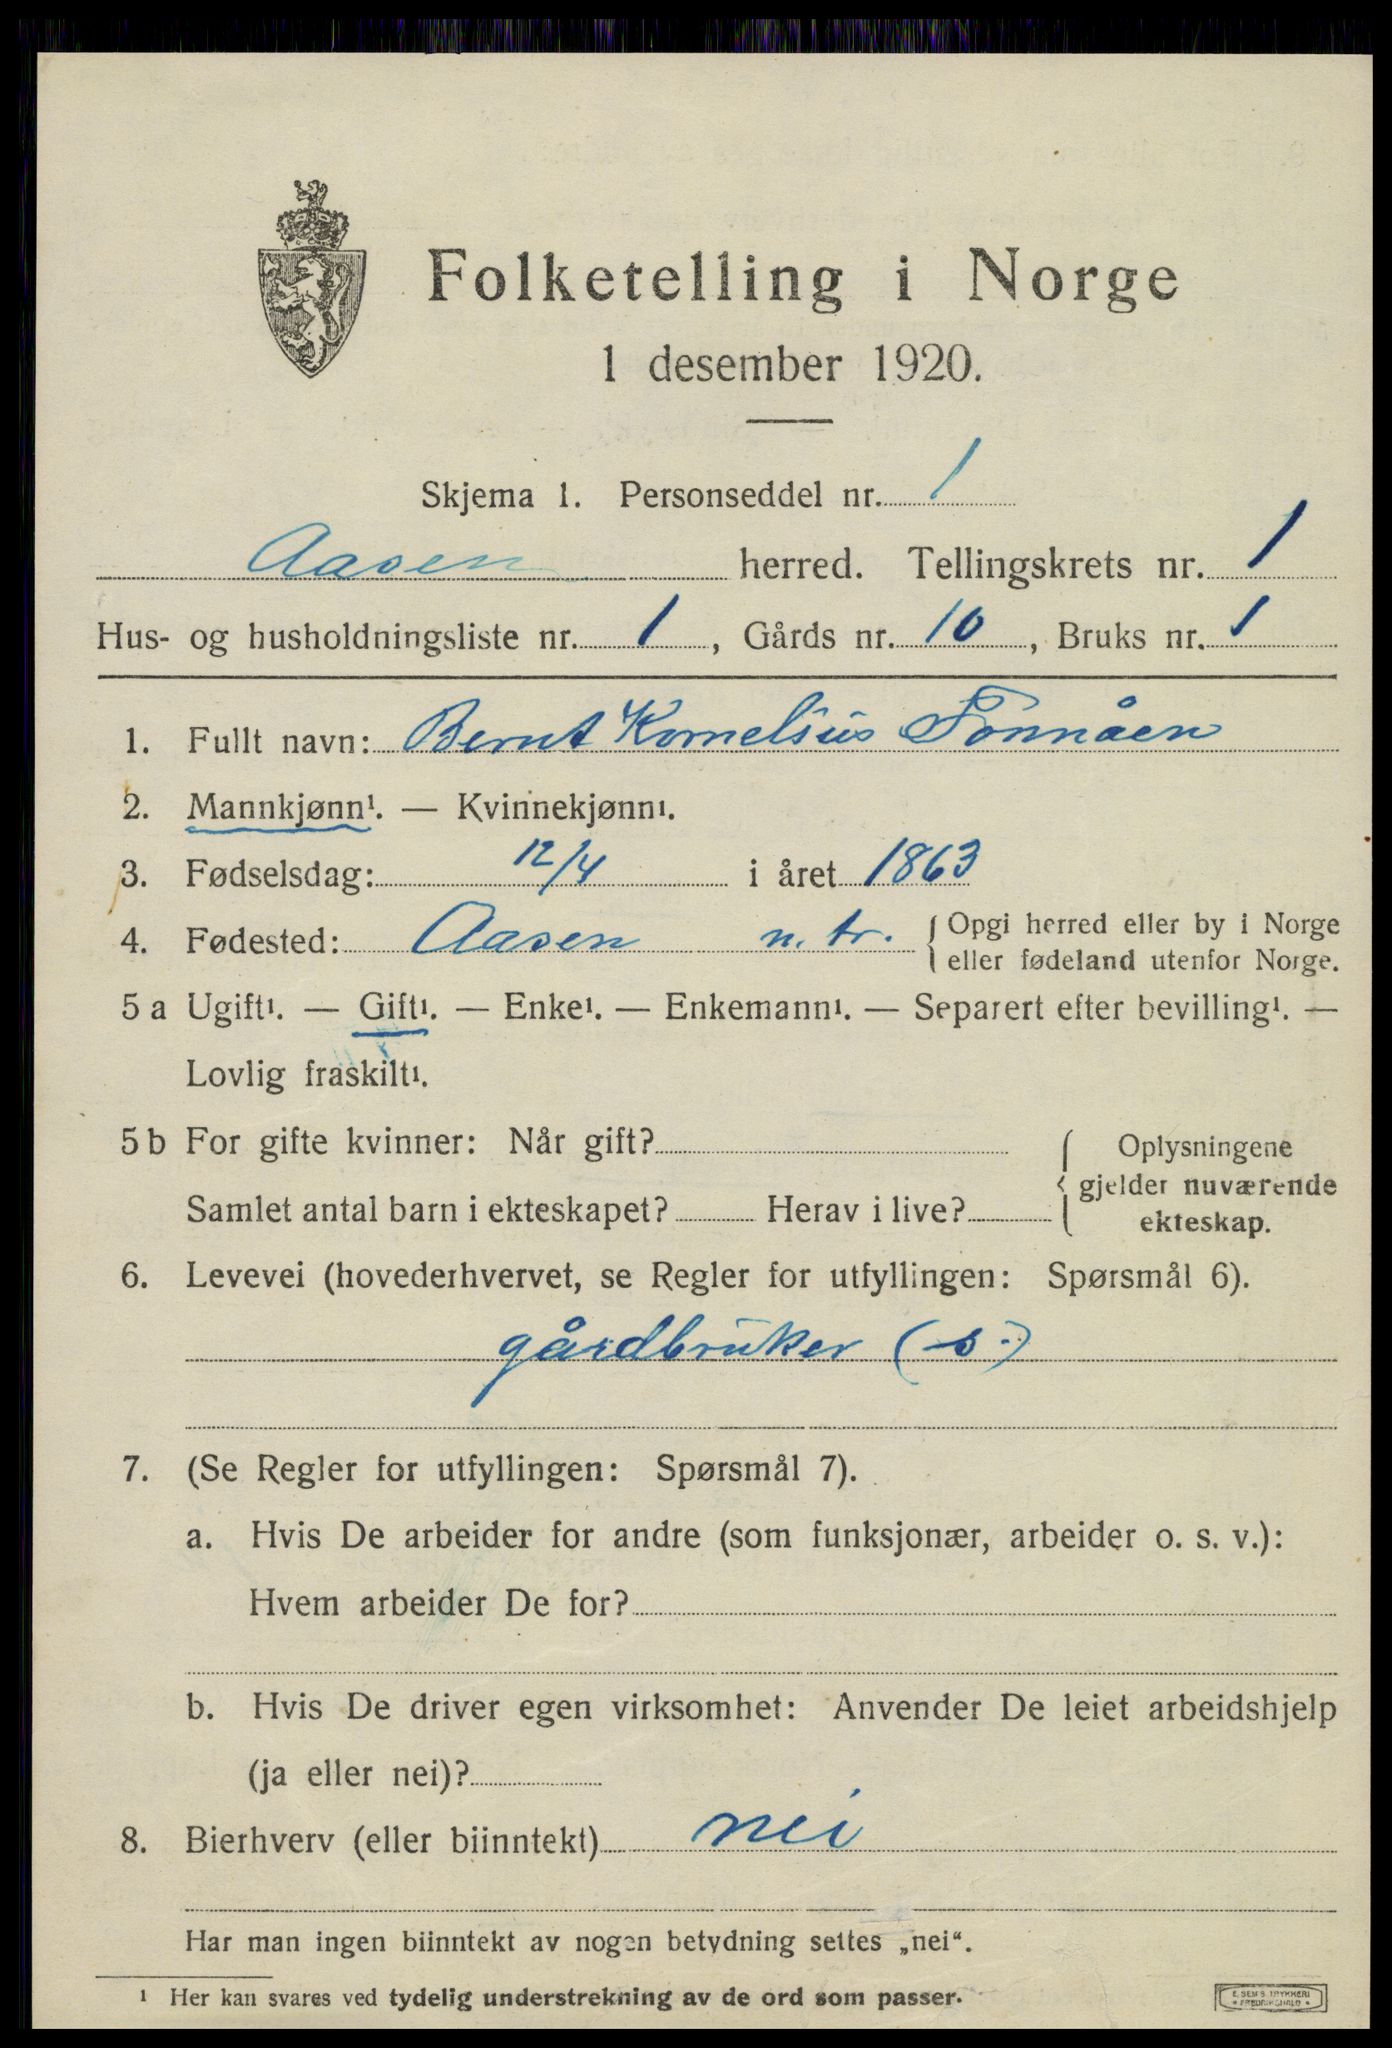 Folketelling i Norge
1 desember 1920.
Skjema 1. Personseddel nr. 1
Aasen herred. Tellingskrets nr. 1
Hus- og husholdningsliste nr. 1, Gårds nr. 10, Bruks nr. 1
1. Fullt navn: Bernt Kornelsius Fonnåen
2. Mannkjønn¹. — Kvinnekjønn¹.
3. Fødselsdag: 12/4 i året 1863
4. Fødested: Aasen n. tr. { Opgi herred eller by i Norge
eller fødeland utenfor Norge.
5 a Ugift¹. — Gift¹. — Enke¹. — Enkemann¹. — Separert efter bevilling¹. —
Lovlig fraskilt¹.
5 b For gifte kvinner: Når gift?
Samlet antal barn i ekteskapet? Herav i live?
{ Oplysningene
gjelder nuværende
ekteskap.
6. Levevei (hovederhvervet, se Regler for utfyllingen: Spørsmål 6).
gårdbruker (s.)
7. (Se Regler for utfyllingen: Spørsmål 7).
a. Hvis De arbeider for andre (som funksjonær, arbeider o. s. v.):
Hvem arbeider De for?
b. Hvis De driver egen virksomhet: Anvender De leiet arbeidshjelp
(ja eller nei)?
8. Bierhverv (eller biinntekt) nei
Har man ingen biinntekt av nogen betydning settes „nei“.
¹ Her kan svares ved tydelig understrekning av de ord som passer.
E. SEMS TRYKKERI
FREDRIKSHALD